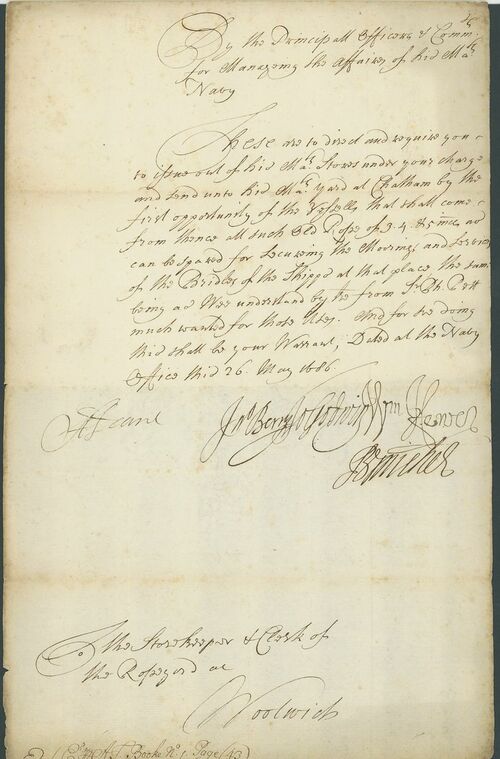 By the Principall Officers & Comm.rs
for Manageing the Affaires of his Ma.ts
Navy
These are to direct and require you
to issue out of his Ma.ts Stores under your charge
and send unto his Ma.ts Yard at Chatham by the
first opportunity of the Vessells that shall come
from thence all such Old Rope of 3. 4. & 5 inces as
can be spared for secureing the Moorings and
of the Bridles of the Shipps at that place the same
being as Wee understand by from S.r Ph: Pett
much wanted for those Uses. And for soe doing
this shall be your Warrant, Dated at the Navy
Office this 26. May 1686.
Jn.o Berry W Godwin Wm Hewer
To the Storekeeper & Clerk of
the Ropeyard at
Woolwich
Booke N.o 1. Page (43)